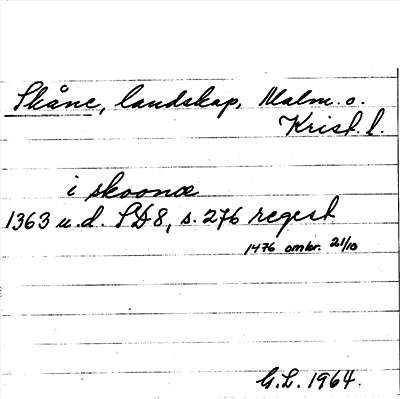 Skåne, landskap, Malm. o.
Krist. l.
i skoonæ
1363 u.d. SD 8, s. 276 regest
1476 omkr. 21/10
G.L. 1964.